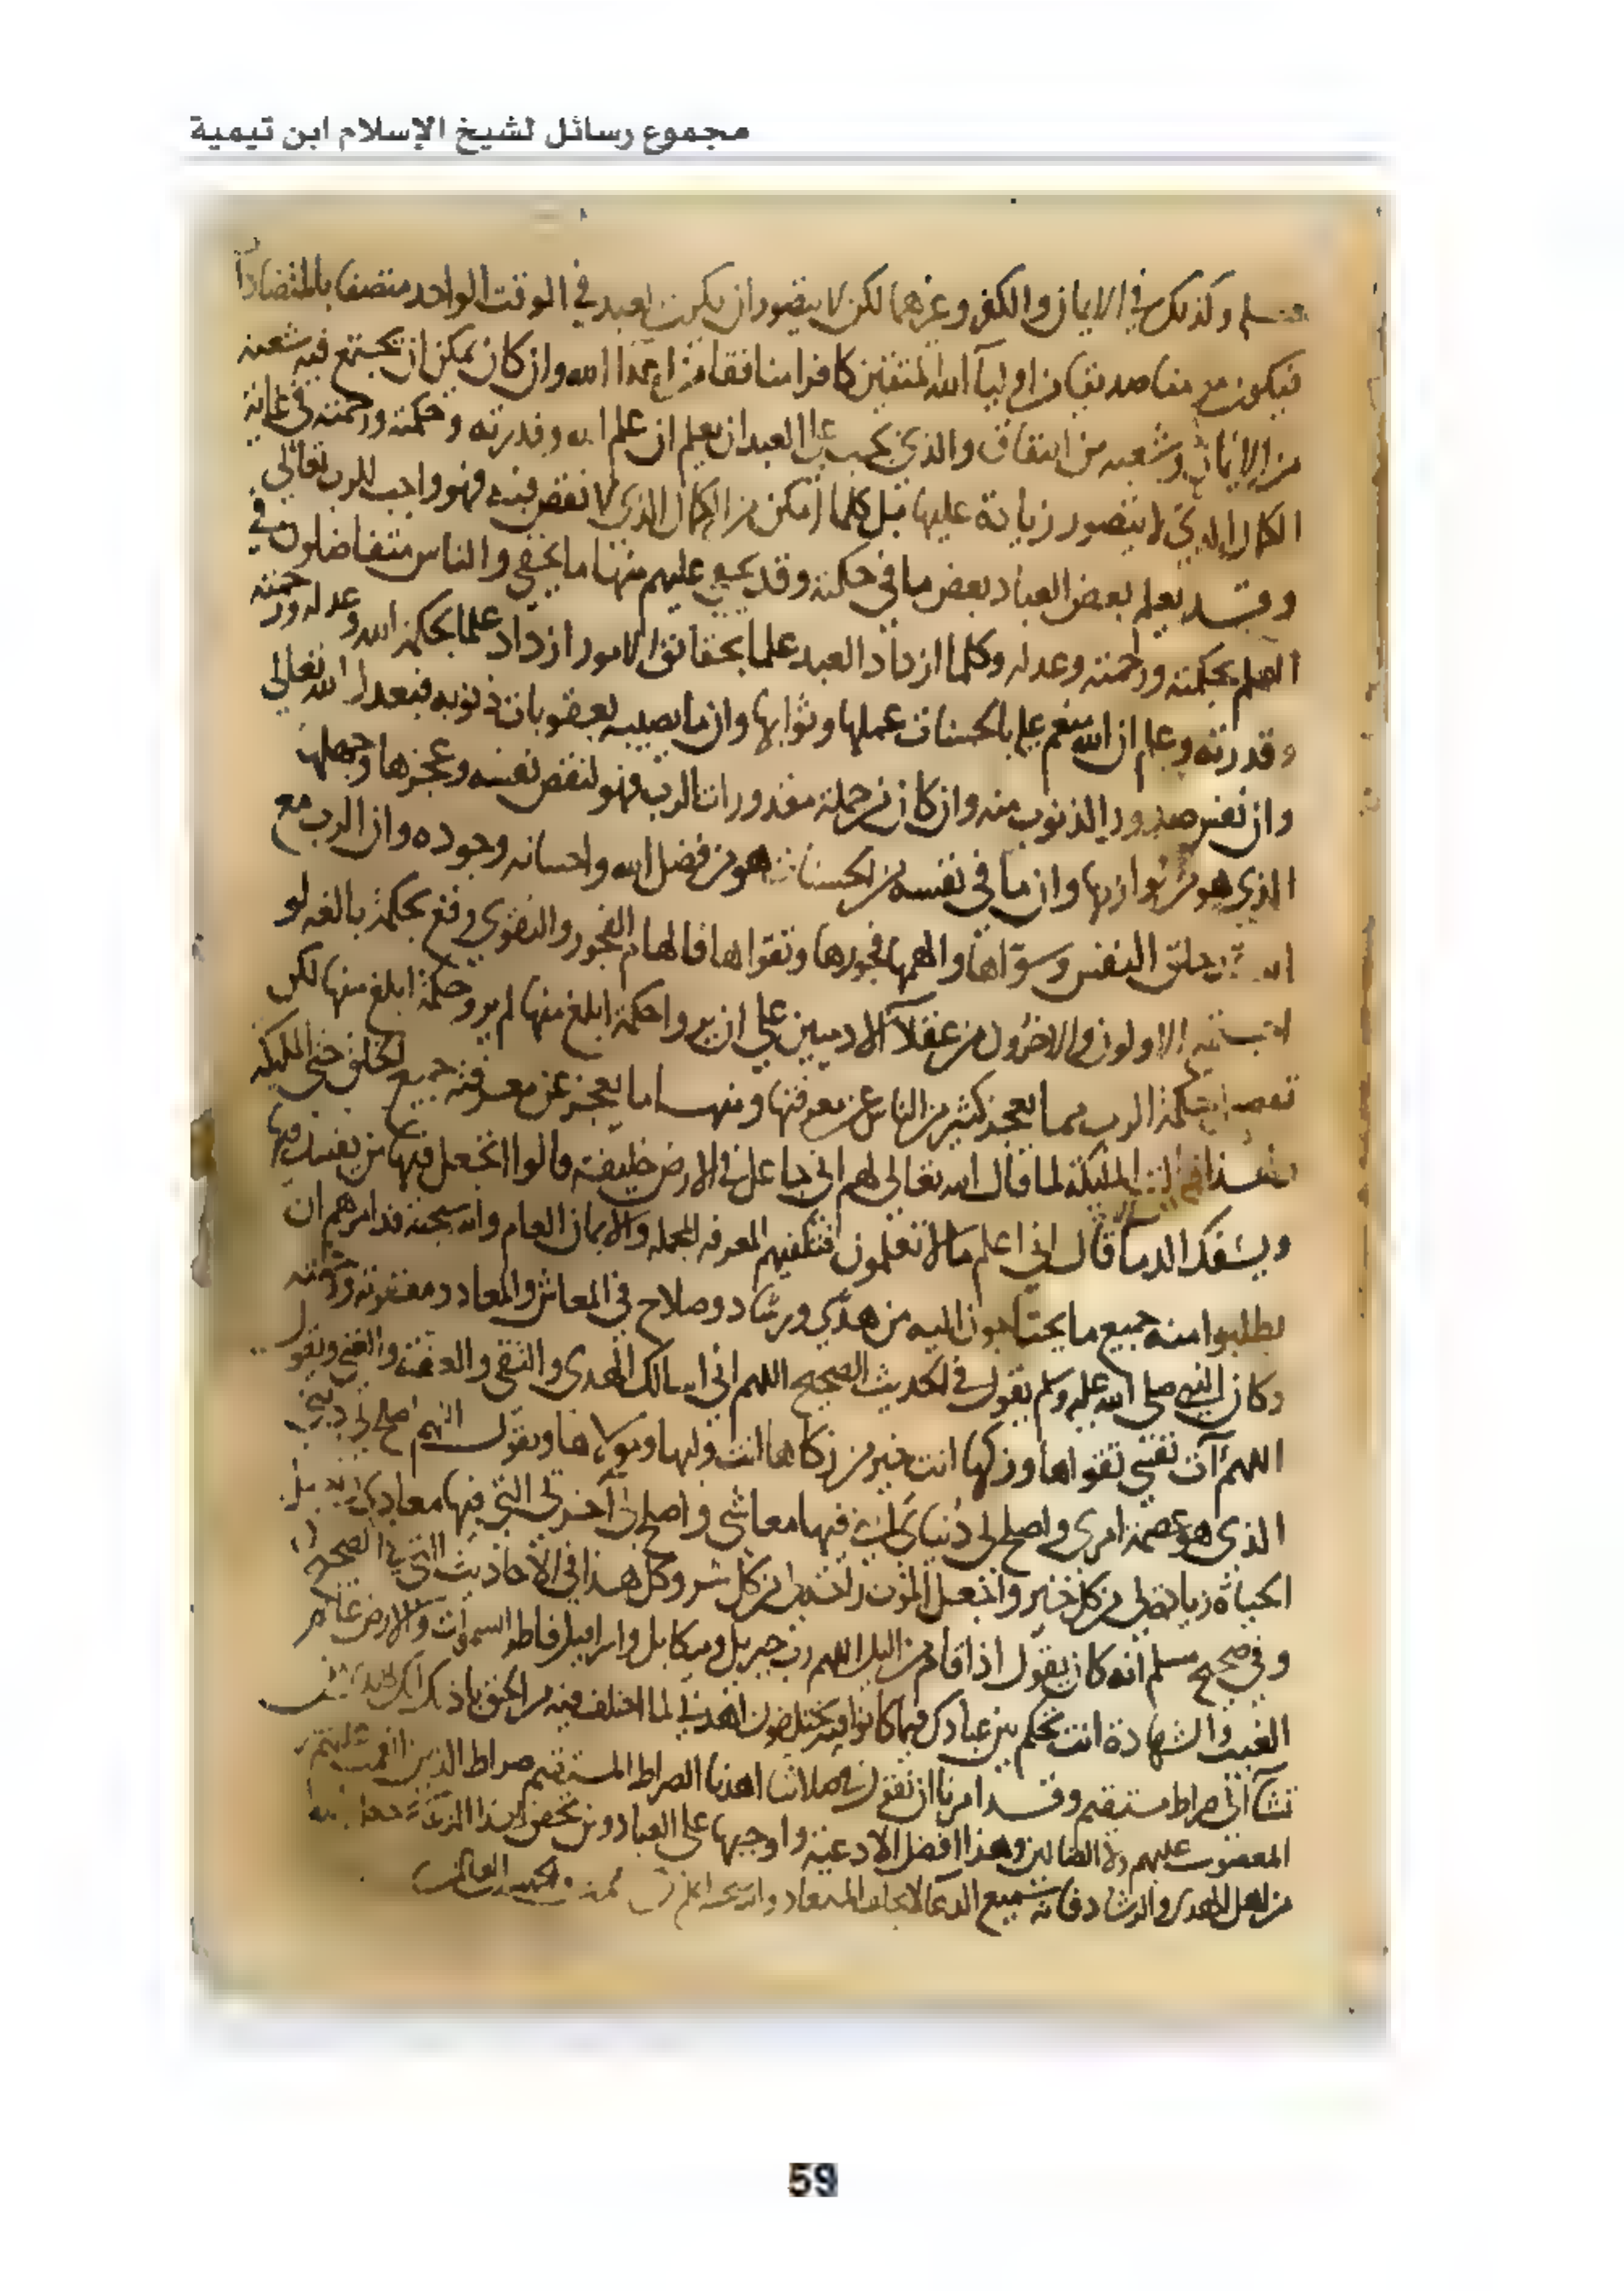 مجموع رسائل لشيخ الإسلام ابن تيمية
وكذلك في الايمان والكفر وغيرهما لكن لا يتصور ان يكون العبد في الوقت الواحد متصفا بالمتضادات
فيكون مومنا صديقا من اوليآ الله المتقين كافرا منافقا من اعدا الله وان كان يمكن ان تجتمع فيه شعبه
من الايمان وشعبه من النفاق والذي يجب على العبد ان يعلم ان علم الله وقدرته وحكمته ورحمته في غاية
الكمال الذي لا يتصور زيادة عليها بل كلما امكن من الكمال الذي لا نقص فيه فهو واجب للرب تعالى
وقد يعلم بعض العباد بعض ما في حكمته وقد يخفي عليهم منها ما يخفي والناس متفاضلون في
العلم بحكمته ورحمته وعدله وكلما ازداد العبد علما بحقائق الامور ازداد علما بحكمة الله وعدله ورحمته
وقدرته وعلم ان الله منعم عليه بالحسنات عملها وثوابها وان ما يصيبه بعقوبات ذنوبه فبعدل الله تعالى
وان نفس صدور الذنوب منه وان كان من جملة مقدورات الرب فهو لنقص نفسه وعجزها وجهلها
الذي هو من لوازمها وان ما في نفسه من الحسنات هو من فضل الله واحسانه وجوده وان الرب مع
خلق النفس وسواها والهمها فجورها وتقواها فالهام الفجور والتقوى وقع بحكمة بالغه لو
الاولون والاخرون من عقلآ الادميين على ان يروا حكمة ابلغ منها لم يروا حكمة ابلغ منها لكن
حكمة الرب مما يعجز كثير من الناس عن معرفتها ومنها ما يعجز عن معرفته جميع الخلق حتى المليكه
الملئكة لما قال الله تعالى لهم اني جاعل في الارض خليفة قالوا اتجعل فيها من يفسد فيها
ويسفك الدمآ قال اني اعلم ما لا تعلمون فتكفيهم المعرفه المجمله والايمان العام والله سبحنه قد امرهم ان
يطلبوا منه جميع ما يحتاجون اليه من هدى ورشاد وصلاح في المعاش والمعاد ومغفرته ورحمته
وكان النبي صلى الله عليه وسلم يقول في الحديث الصحيح اللهم اني اسالك الهدى والتقى والعفة والغنى ويقول
اللهم آت نفسي تقواها وزكها انت خير من زكاها انت وليها ومولاها ويقول اللهم اصلح لي ديني
الذي هو عصمة امري واصلح لي دنياي التي فيها معاشي واصلح لي آخرتي التي فيها معادي
الحياة زيادة لي من كل خير واجعل الموت راحة لي من كل شر وكل هذا في الاحاديث التي في الصحيح
وفي صحيح مسلم انه كان يقول اذا قام من الليل اللهم رب جبريل وميكايل واسرافيل فاطر السموات والارض عالم
الغيب والشهادة انت تحكم بين عبادك فيما كانوا فيه يختلفون اهدني لما اختلف فيه من الحق باذنك انك تهدي من
تشآ الى صراط مستقيم وقد امرنا ان نقول في صلاتنا اهدنا الصراط المستقيم صراط الذين انعمت عليهم غير
المغضوب عليهم ولا الضالين وهذا افضل الادعية واوجبها على العباد ومن تحقق بهذا الدعآ جعله الله
من اهل الهدى والرشاد فانه سميع الدعآ لا يخلف الميعاد والله سبحنه اعلم
59